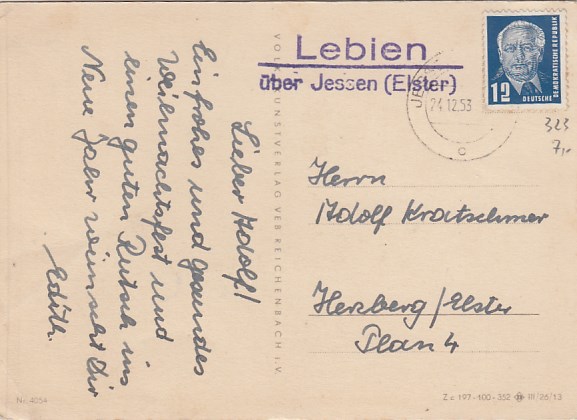 Lieber Adolf!
Ein frohes und gesundes
Weihnachtsfest und
einen guten Rutsch ins
Neue Jahr wünscht Dir
Edith.
VOLKSKUNSTVERLAG VEB REICHENBACH I. V.
Lebien
über Jessen (Elster)
24.12.53
c
12
DEUTSCHE
DEMOKRATISCHE REPUBLIK
323
7,-
Herrn
Adolf Kratschmer
Herzberg/Elster
Plan 4
Nr. 4054
Z = 197-100-352 III/26/13